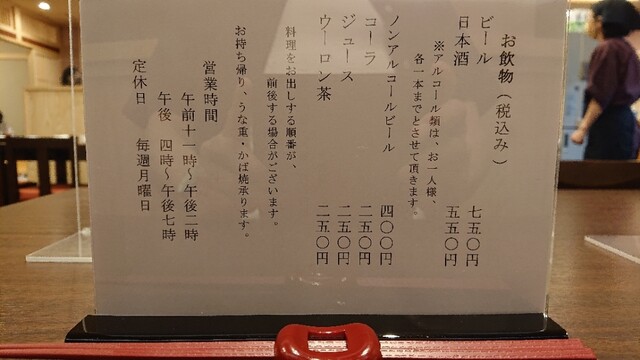 お飲物（税込み）
ビール 七五〇円
日本酒 五五〇円
※アルコール類は、お一人様、
各一本までとさせて頂きます。
ノンアルコールビール 四〇〇円
コーラ 二五〇円
ジュース 二五〇円
ウーロン茶 二五〇円
料理をお出しする順番が、
前後する場合がございます。
お持ち帰り、うな重・かば焼承ります。
営業時間
午前十一時～午後二時
午後 四時～午後七時
定休日 毎週月曜日